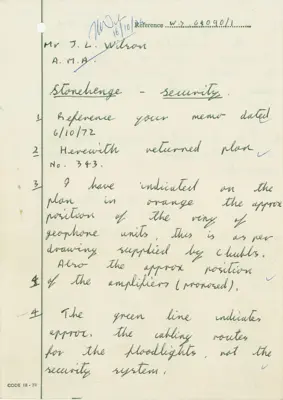 Reference W.S. 64090/1
16/10
Mr J. L. Wilson
A.M.A.
Stonehenge - security.
1. Reference your memo dated
6/10/72
2. Herewith returned plan
No. 343.
3. I have indicated on the
plan in orange the approx
position of the ring of
geophone units, this is as per
drawing supplied by Chubbs.
Also the approx position
4 of the amplifiers (proposed).
4. The green line indicates
approx. the cabling routes
for the floodlights, not the
security system.
CODE 18-